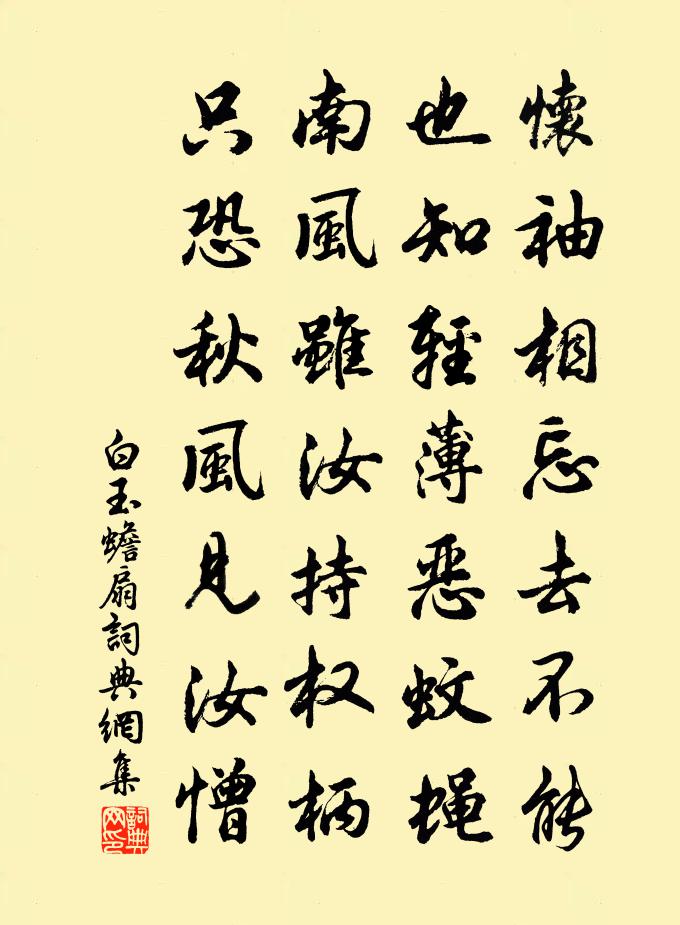 懷袖相忘去不能
也知輕薄惡蚊蝇
南風雖汝持权柄
只恐秋風見汝憎
白玉蟾扇詞典網集
詞典
网印